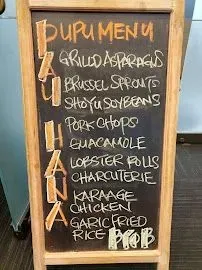 PUPU MENU
PAU HANA
GRILLED ASPARAGUS
BRUSSEL SPROUTS
SHOYU SOYBEANS
PORK CHOPS
GUACAMOLE
LOBSTER ROLLS
CHARCUTERIE
KARAAGE
CHICKEN
GARIC FRIED
RICE